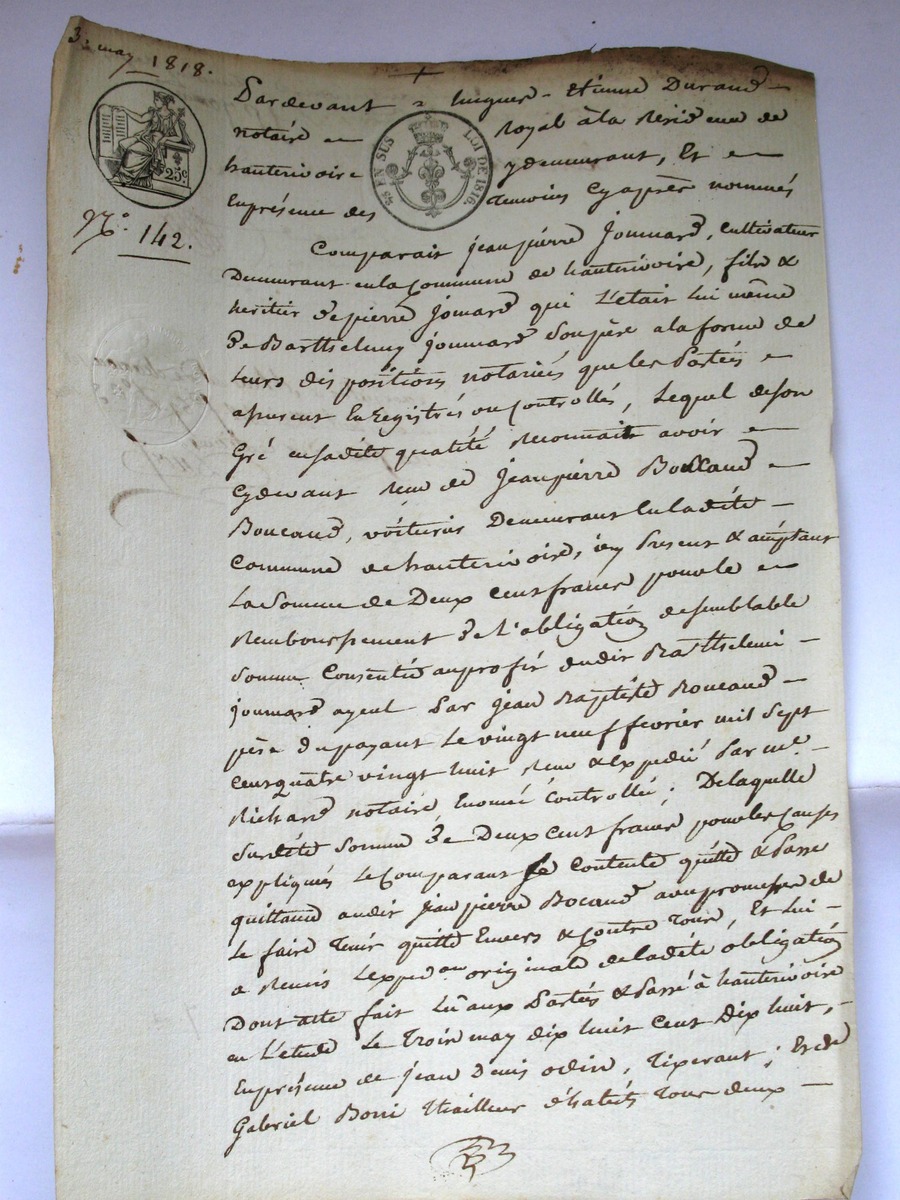 3. may 1818.
Pardevant hugues Etienne Durand
notaire Royal à la Residence de
hauterivoire y demeurant, Et
En présence des temoins Cy après nommés
25c.
EN SUS
LOI DE 1816.
N.o 142.
Comparait jean pierre Joumard, cultivateur
Demeurant en la Commune de hauterivoire, fils &
heritier de pierre Joumard qui L'était Lui même
De Barthelemy Joumard Son père a la forme de
Leurs dispositions notariées que les Parties
assurent Enregistrés ou Controllés, Lequel de son
Gré en sadite qualité Reconnait avoir
Cydevant Reçu de Jean pierre
Boucaud, voiturier Demeurant En Ladite
Commune de hauterivoire, icy Present & acceptant
La Somme de Deux cent francs pour le
Remboursement De L'obligation de semblable
Somme Consentie au profit dudit Barthelemi
Joumard ayeul Par Jean Baptiste Boucaud
père du payant Le vingt neuf fevrier mil Sept
Cent quatre vingt huit Reçu & Expedié Par me
Richard notaire Controllé; De laquelle
Susdite Somme De Deux Cent francs pour les Causes
expliquées Le Comparant Se Contente quitte & Passe
quittance audit jean pierre Bocaud avec promesse de
Le faire Tenir quitte Envers & Contre Tous, Et Lui
a Remis L'expedon originale de ladite obligation
Dont acte fait Lû aux Parties & Passé à hauterivoire
en L'etude Le Trois may dix huit Cent Dix huit,
En présence de jean Denis odin, Tixerant; Et de
Gabriel Tailleur d'habits Tous deux